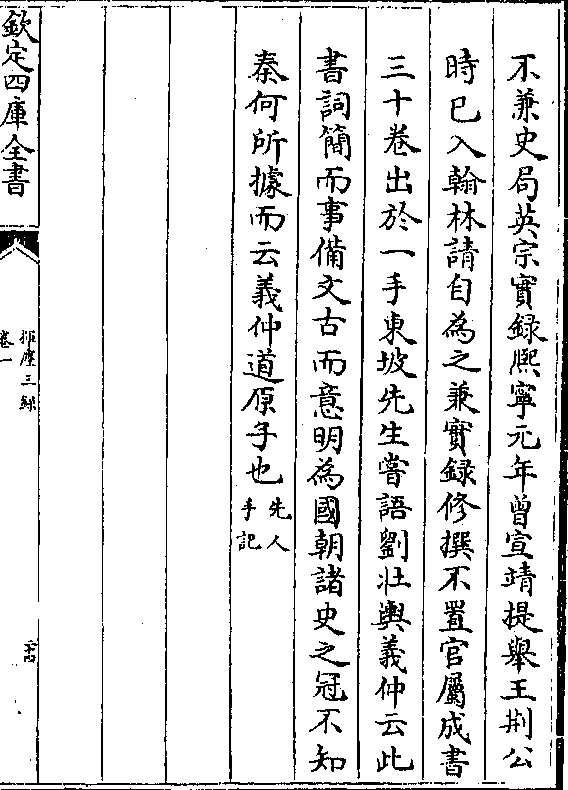 不兼史局英宗實録熙寧元年曾宣靖提舉王荆公
時已入翰林請自為之兼實録修撰不置官屬成書
三十卷出於一手東坡先生嘗語劉壯輿義仲云此
書詞簡而事備文古而意明為國朝諸史之冠不知
秦何所據而云義仲道原子也先人手記
欽定四庫全書
揮麈三録
卷一
二十四